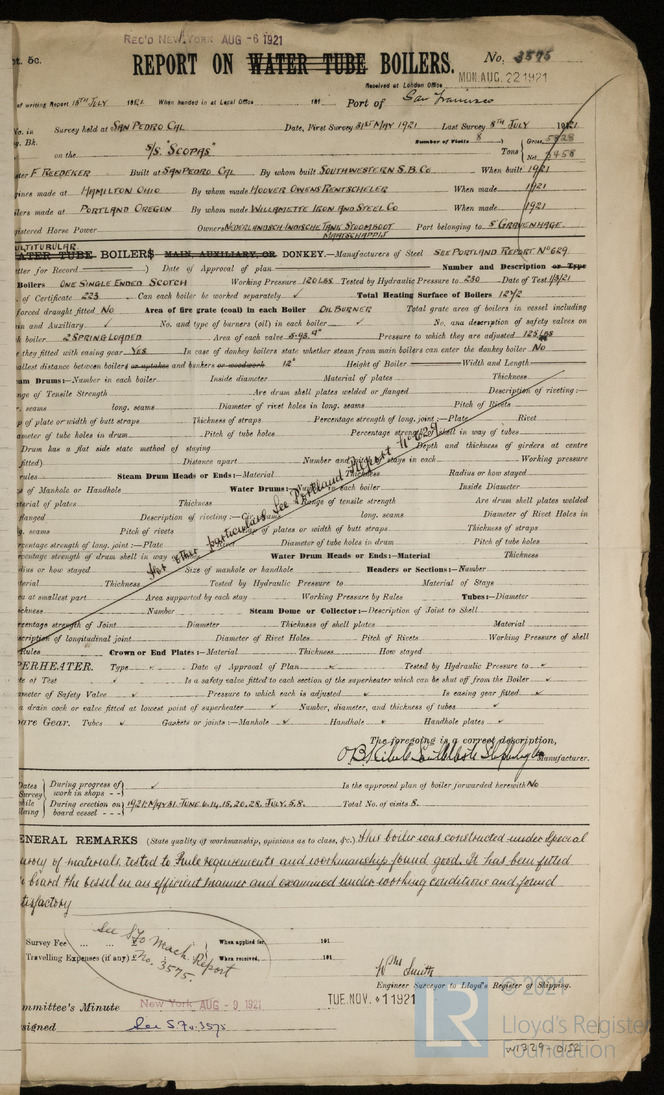 REC'D NEW YORK AUG -6 1921
pt. 5c.
REPORT ON WATER TUBE BOILERS.
No. 3575
Received at London Office MON. AUG. 22 1921
of writing Report 15TH JULY 1921 When handed in at Local Office 191 Port of San Francisco
No. in Survey held at SAN PEDRO CAL Date, First Survey 31ST MAY 1921 Last Survey 8TH JULY 1921
g. Bk. Number of Visits 8
on the S/S. "SCOPAS" Tons { Gross 5828 Net 3458
ster F REEDEKER Built at SAN PEDRO CAL By whom built SOUTHWESTERN S.B. CO When built 1921
gines made at HAMILTON OHIO By whom made HOOVER OWENS RENTSCHELER When made 1921
ilers made at PORTLAND OREGON By whom made WILLAMETTE IRON AND STEEL CO When made 1921
gistered Horse Power Owners NEDERLANDSCH INDISCHE TANK STOOMBOOT MAATSCHAPPIJ Port belonging to S' GRAVENHAGE.
MULTITUBULAR
WATER TUBE BOILERS MAIN, AUXILIARY, OR DONKEY.—Manufacturers of Steel SEE PORTLAND REPORT No 629
tter for Record ) Date of Approval of plan Number and Description or Type
Boilers ONE SINGLE ENDED SCOTCH Working Pressure 120 LBS Tested by Hydraulic Pressure to 230 Date of Test 1/3/21
of Certificate 223 Can each boiler be worked separately ✓ Total Heating Surface of Boilers 1272
forced draught fitted No Area of fire grate (coal) in each Boiler OIL BURNER Total grate area of boilers in vessel including
in and Auxiliary ✓ No. and type of burners (oil) in each boiler ✓ No. and description of safety valves on
h boiler 2 SPRING LOADED Area of each valve 5.93 □" Pressure to which they are adjusted 125 LBS
e they fitted with easing gear YES In case of donkey boilers state whether steam from main boilers can enter the donkey boiler No
allest distance between boilers or uptakes and bunkers or woodwork 12" Height of Boiler Width and Length
eam Drums:—Number in each boiler Inside diameter Material of plates Thickness
nge of Tensile Strength Are drum shell plates welded or flanged Description of riveting:—
r. seams long. seams Diameter of rivet holes in long. seams Pitch of Rivets
p of plate or width of butt straps Thickness of straps Percentage strength of long. joint:—Plate Rivet
ameter of tube holes in drum Pitch of tube holes Percentage strength of shell in way of tubes
Drum has a flat side state method of staying Depth and thickness of girders at centre
fitted) Distance apart Number and pitch of stays in each Working pressure
rules Steam Drum Heads or Ends:—Material Thickness Radius or how stayed
e of Manhole or Handhole Water Drums:—Number in each boiler Inside Diameter
aterial of plates Thickness Range of tensile strength Are drum shell plates welded
flanged Description of riveting:—Cir. seams long. seams Diameter of Rivet Holes in
g. seams Pitch of rivets Lap of plates or width of butt straps Thickness of straps
rcentage strength of long. joint:—Plate Diameter of tube holes in drum Pitch of tube holes
rcentage strength of drum shell in way Water Drum Heads or Ends:—Material Thickness
For other particulars See Portland Report No 629
dius or how stayed Size of manhole or handhole Headers or Sections:—Number
terial Thickness Tested by Hydraulic Pressure to Material of Stays
ea at smallest part Area supported by each stay Working Pressure by Rules Tubes:—Diameter
ickness Number Steam Dome or Collector:—Description of Joint to Shell
rcentage strength of Joint Diameter Thickness of shell plates Material
scription of longitudinal joint Diameter of Rivet Holes Pitch of Rivets Working Pressure of shell
Rules Crown or End Plates:—Material Thickness How stayed
PERHEATER. Type ✓ Date of Approval of Plan ✓ Tested by Hydraulic Pressure to ✓
te of Test ✓ Is a safety valve fitted to each section of the superheater which can be shut off from the Boiler ✓
ameter of Safety Valve ✓ Pressure to which each is adjusted ✓ Is easing gear fitted ✓
a drain cock or valve fitted at lowest point of superheater ✓ Number, diameter, and thickness of tubes ✓
are Gear. Tubes ✓ Gaskets or joints:—Manhole ✓ Handhole ✓ Handhole plates ✓
The foregoing is a correct description,
Manufacturer.
Dates Survey while building { During progress of work in shops - - } ✓ Is the approved plan of boiler forwarded herewith No
{ During erection on board vessel - - - } 1921: MAY 31. JUNE 6. 14. 15. 20. 28. JULY. 5. 8. Total No. of visits 8.
ENERAL REMARKS (State quality of workmanship, opinions as to class, &c.) This boiler was constructed under Special
urvey of materials, tested to Rule requirements and workmanship found good. It has been fitted
board the vessel in an efficient manner and examined under working conditions and found
tisfactory
See SFo Mach. Report No. 3575.
Survey Fee ... ... £ When applied for 191
Travelling Expenses (if any) £ When received, 191
Wm Smith
Engineer Surveyor to Lloyd's Register of Shipping.
TUE. NOV. 1 1921
mmittee's Minute New York AUG - 9 1921
signed See S. Fo. 3575
© 2021
LR
Lloyd's Register
Foundation
W1329-0152